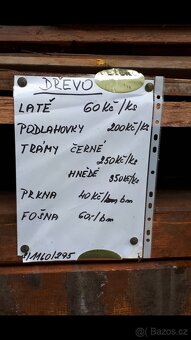 DŘEVO
LATĚ 60Kč/Ks
PODLAHOVKY 200Kč/Ks
TRÁMY ČERNÉ
250Kč/Ks
HNĚDÉ 350Kč/Ks
PRKNA 40Kč/bm
FOŠNA 60,-/bm
1140/295
©Bazoš.cz